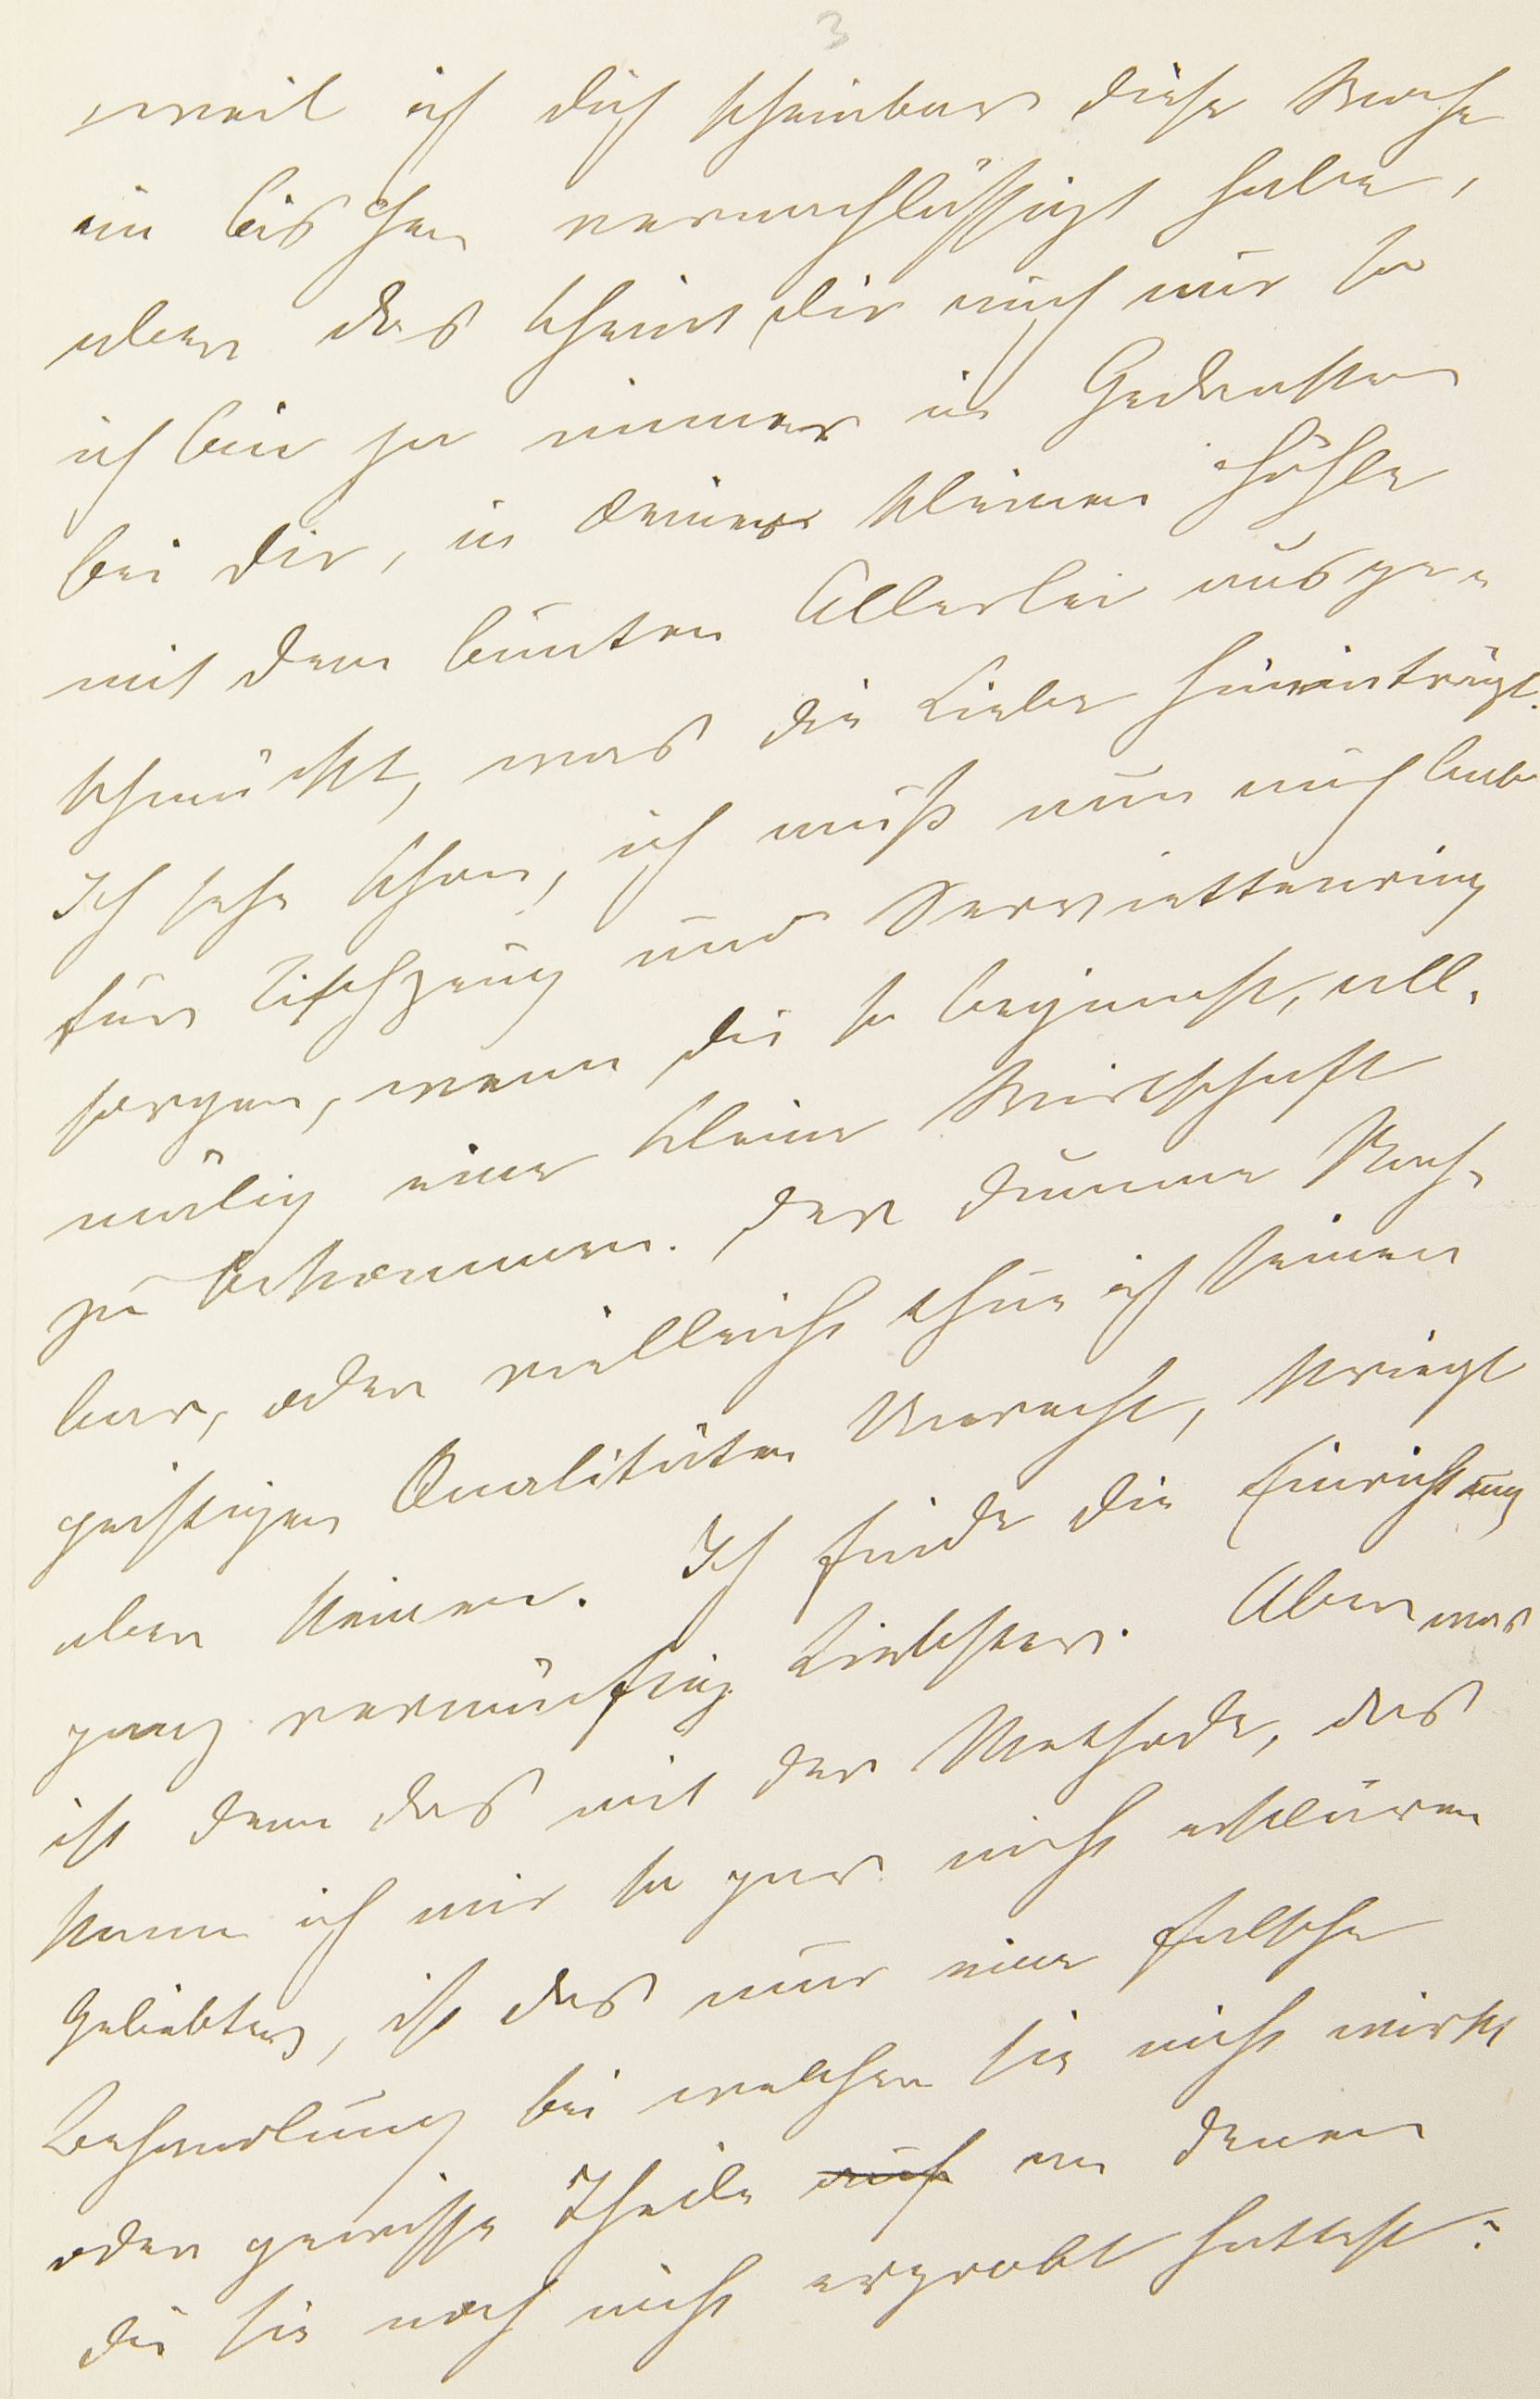 3
weil ich dich scheinbar diese Woche
ein bischen vernachlässigt habe,
aber das scheint dir auch nur so
ich bin ja immer in Gedanken
bei dir, in deiner kleinen Höhle
mit dem bunten Allerlei ausge-
schmückt, was die Liebe hineinträgt.
Ich sehe schon, ich muß nun auch bald
für Tischzeug und Serviettenring
sorgen, wenn du so beginnst, all.
mälig eine kleine Wirthschaft
zu bekommen. Der dumme Nach-
bar, oder vielleicht thue ich seinen
geistigen Qualitäten Unrecht, kriegt
aber keinen. Ich finde die Einrichtung
ganz vernünftig Liebster. Aber was
ist denn das mit der Methode, das
kann ich mir so gar nicht erklären
Geliebter, ist das nur eine falsche
Behandlung bei welcher sie nicht wirkt
oder gewisse Theile auf an denen
du sie noch nicht erprobt hattest?